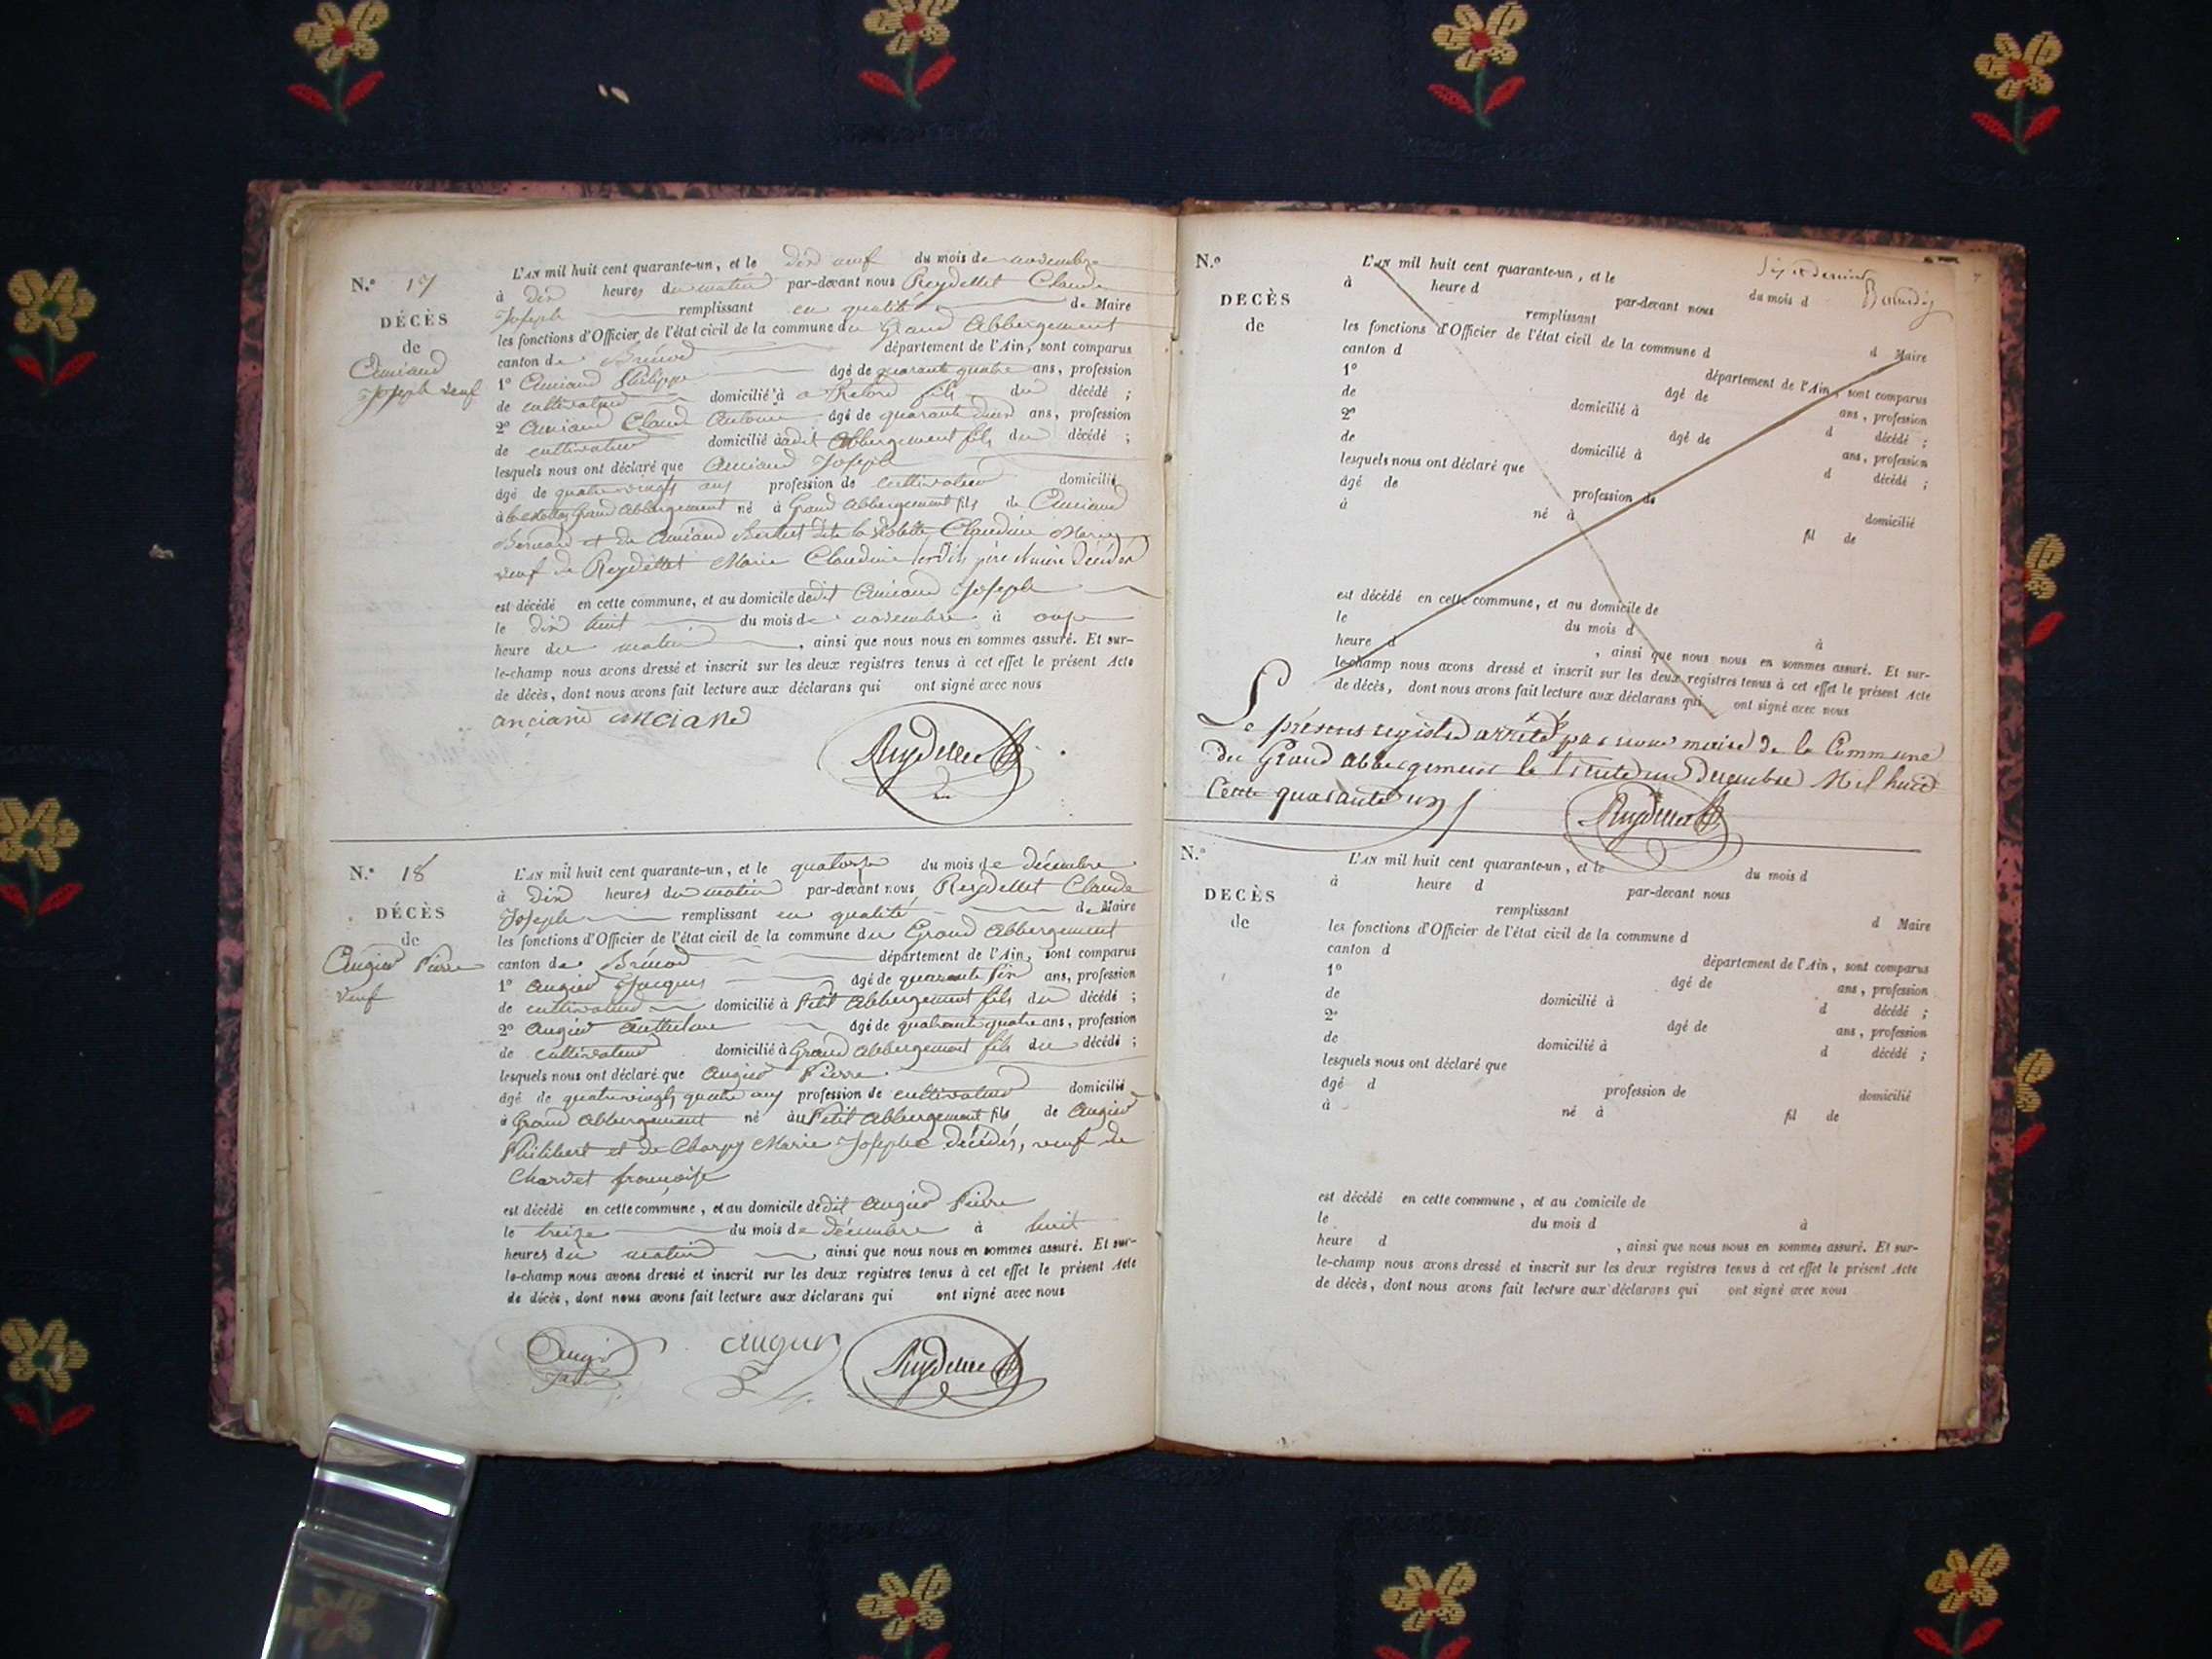 N.° 17
DÉCÈS
de
Anciand
Joseph veuf
L'AN mil huit cent quarante-un, et le dix neuf du mois de novembre
à dix heures du matin par-devant nous Reydellet Claude
Joseph remplissant en qualité de Maire
les fonctions d'Officier de l'état civil de la commune du Grand Abbergement
canton de Brénod département de l'Ain, sont comparus
1° Anciand Philippe âgé de quarante quatre ans, profession
de cultivateur domicilié à Retord fils du décédé ;
2° Anciand Claude Antoine âgé de quarante deux ans, profession
de cultivateur domicilié audit Abbergement fils du décédé ;
lesquels nous ont déclaré que Anciand Joseph
âgé de quatre vingts ans profession de cultivateur domicilié
à Grand Abbergement né à Grand Abbergement fils de Anciand
Bernard et de Anciand Berthet dite la Violette Claudine Marie
veuf de Reydellet Marie Claudine lesdits père et mère décédés
est décédé en cette commune, et au domicile dudit Anciand Joseph
le dix huit du mois de novembre à onze
heure du matin, ainsi que nous nous en sommes assuré. Et sur-
le-champ nous avons dressé et inscrit sur les deux registres tenus à cet effet le présent Acte
de décès, dont nous avons fait lecture aux déclarans qui ont signé avec nous
anciand anciand
Reydellet
N.° 18
DÉCÈS
de
Augier Pierre
veuf
L'AN mil huit cent quarante-un, et le quatorze du mois de décembre
à dix heures du matin par-devant nous Reydellet Claude
Joseph remplissant en qualité de Maire
les fonctions d'Officier de l'état civil de la commune du Grand Abbergement
canton de Brénod département de l'Ain, sont comparus
1° Augier Jacques âgé de quarante six ans, profession
de cultivateur domicilié à Petit Abbergement fils du décédé ;
2° Augier Anthelme âgé de quarante quatre ans, profession
de cultivateur domicilié à Grand Abbergement fils du décédé ;
lesquels nous ont déclaré que Augier Pierre
âgé de quatre vingts quatre ans profession de cultivateur domicilié
à Grand Abbergement né au Petit Abbergement fils de Augier
Philibert et de Charpy Marie Josephe décédés, veuf de
Charvet françoise
est décédé en cette commune, et au domicile dudit Augier Pierre
le treize du mois de décembre à huit
heures du matin, ainsi que nous nous en sommes assuré. Et sur-
le-champ nous avons dressé et inscrit sur les deux registres tenus à cet effet le présent Acte
de décès, dont nous avons fait lecture aux déclarans qui ont signé avec nous
Augier augier Reydellet
N.°
DÉCÈS
de
L'AN mil huit cent quarante-un, et le du mois d
à heure d par-devant nous
remplissant d Maire
les fonctions d'Officier de l'état civil de la commune d
canton d département de l'Ain, sont comparus
1° âgé de ans, profession
de domicilié à d décédé ;
2° âgé de ans, profession
de domicilié à d décédé ;
lesquels nous ont déclaré que
âgé de profession de domicilié
à né à fil de
est décédé en cette commune, et au domicile de
le du mois d à
heure d , ainsi que nous nous en sommes assuré. Et sur-
le-champ nous avons dressé et inscrit sur les deux registres tenus à cet effet le présent Acte
de décès, dont nous avons fait lecture aux déclarans qui ont signé avec nous
Le présent registre arrêté par nous maire de la Commune
du Grand abbergement le trente un Decembre Mil huit
Cent quarante un
Reydellet
N.°
DÉCÈS
de
L'AN mil huit cent quarante-un, et le du mois d
à heure d par-devant nous
remplissant d Maire
les fonctions d'Officier de l'état civil de la commune d
canton d département de l'Ain, sont comparus
1° âgé de ans, profession
de domicilié à d décédé ;
2° âgé de ans, profession
de domicilié à d décédé ;
lesquels nous ont déclaré que
âgé d profession de domicilié
à né à fil de
est décédé en cette commune, et au domicile de
le du mois d à
heure d , ainsi que nous nous en sommes assuré. Et sur-
le-champ nous avons dressé et inscrit sur les deux registres tenus à cet effet le présent Acte
de décès, dont nous avons fait lecture aux déclarans qui ont signé avec nous